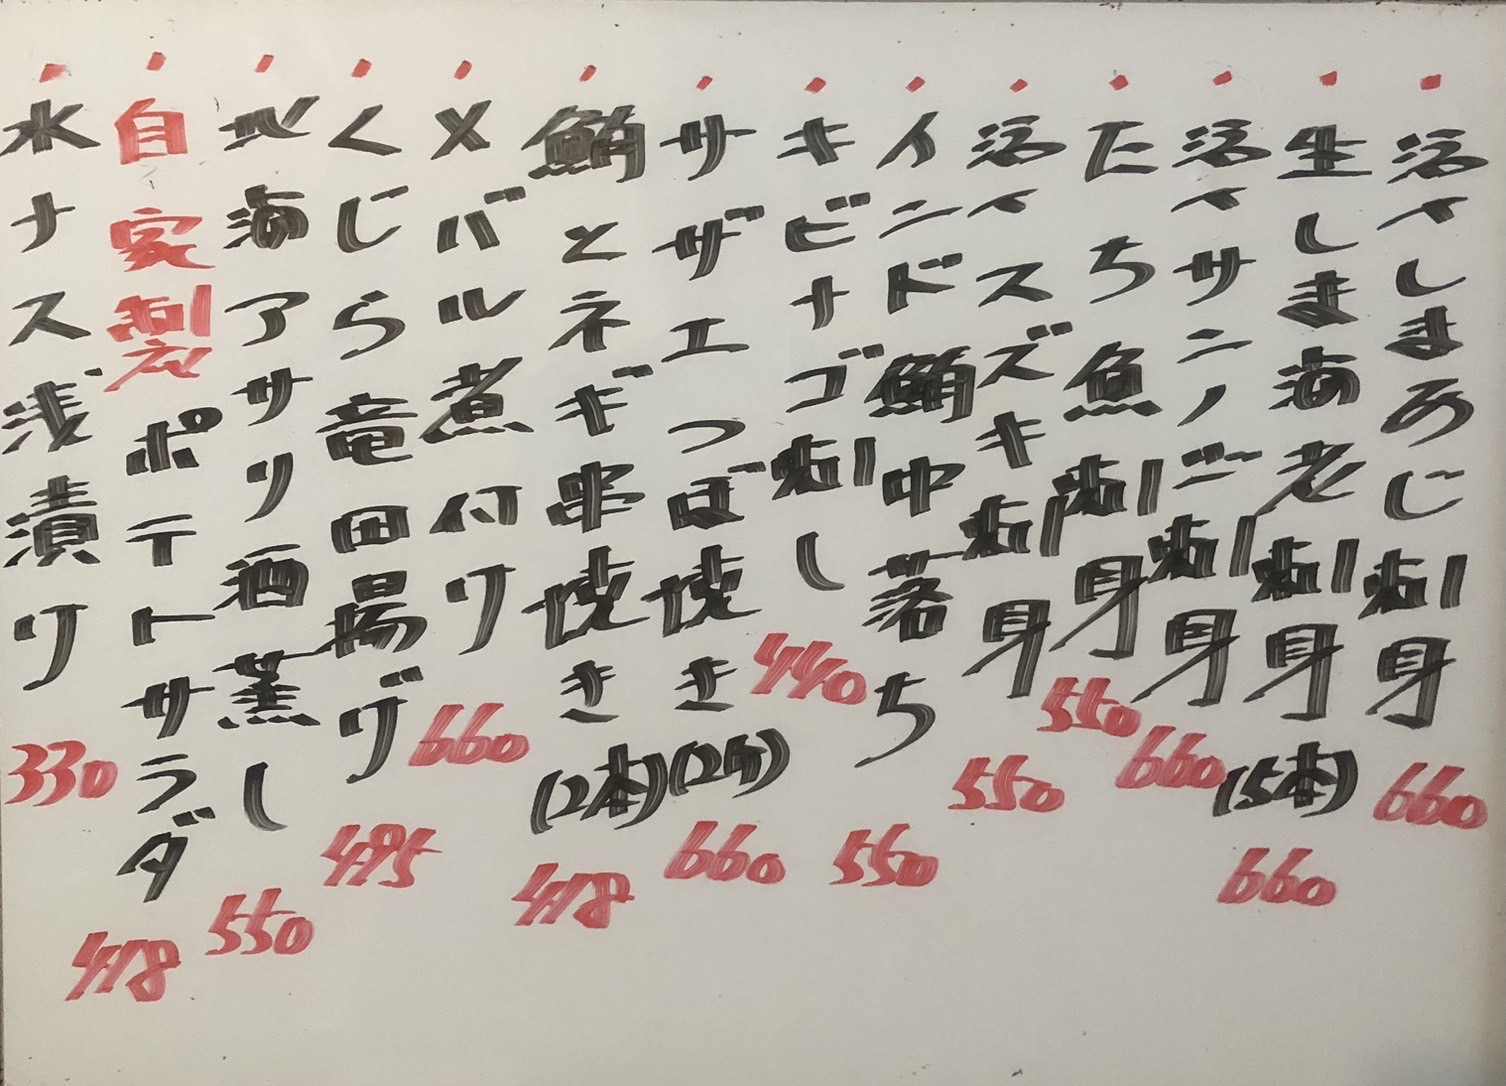 ・活〆しまあじ刺身 660
・生しま海老刺身(5本) 660
・活〆サンノジ刺身 660
・たち魚刺身 550
・活〆スズキ刺身 550
・インド鮪中落ち 550
・キビナゴ刺し 440
・サザエつぼ焼き(2ケ) 660
・鮪とネギ串焼き(2本) 418
・メバル煮付け 660
・くじら竜田揚げ 495
・地海アサリ酒蒸し 550
・自家製ポテトサラダ 418
・水ナス浅漬け 330